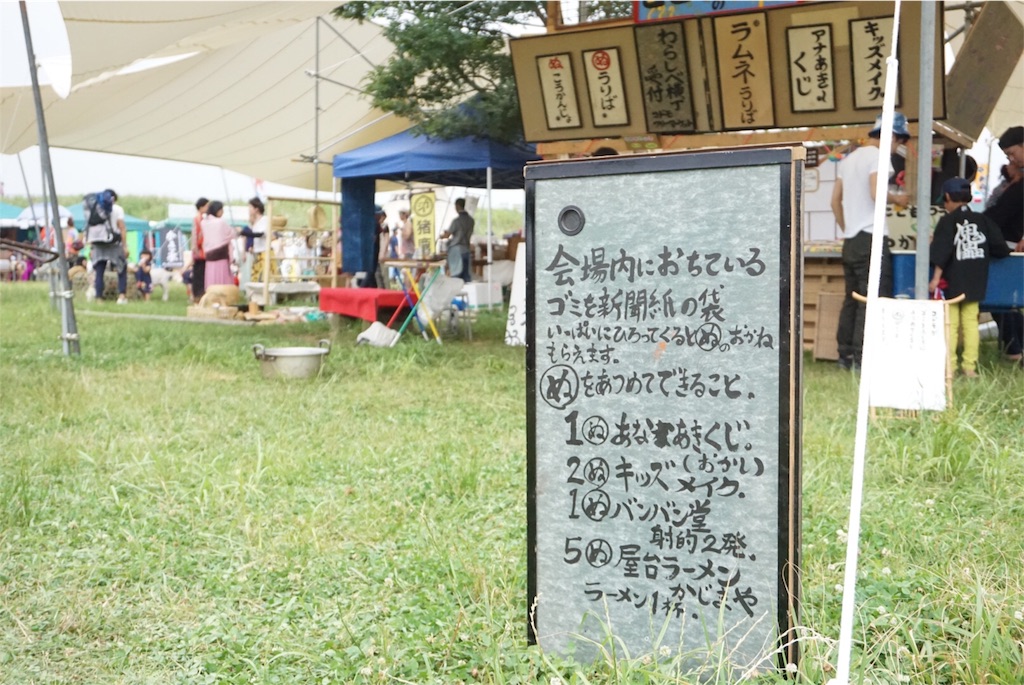 会場内におちている
ゴミを新聞紙の袋
いっぱいにひろってくるとぬのおかね
もらえます。
ぬをあつめてできること。
1ぬあなあきくじ。
2ぬキッズ(おかい)
メイク。
1ぬバンバン堂
射的2発。
5ぬ屋台ラーメン
かじまや
ラーメン1杯。
ぬ
ころかんじ
ぬ
うりば
わらしべ横丁
受付
ラムネうりば
アナあきよ
くじ
キッズメイク
猪鹿